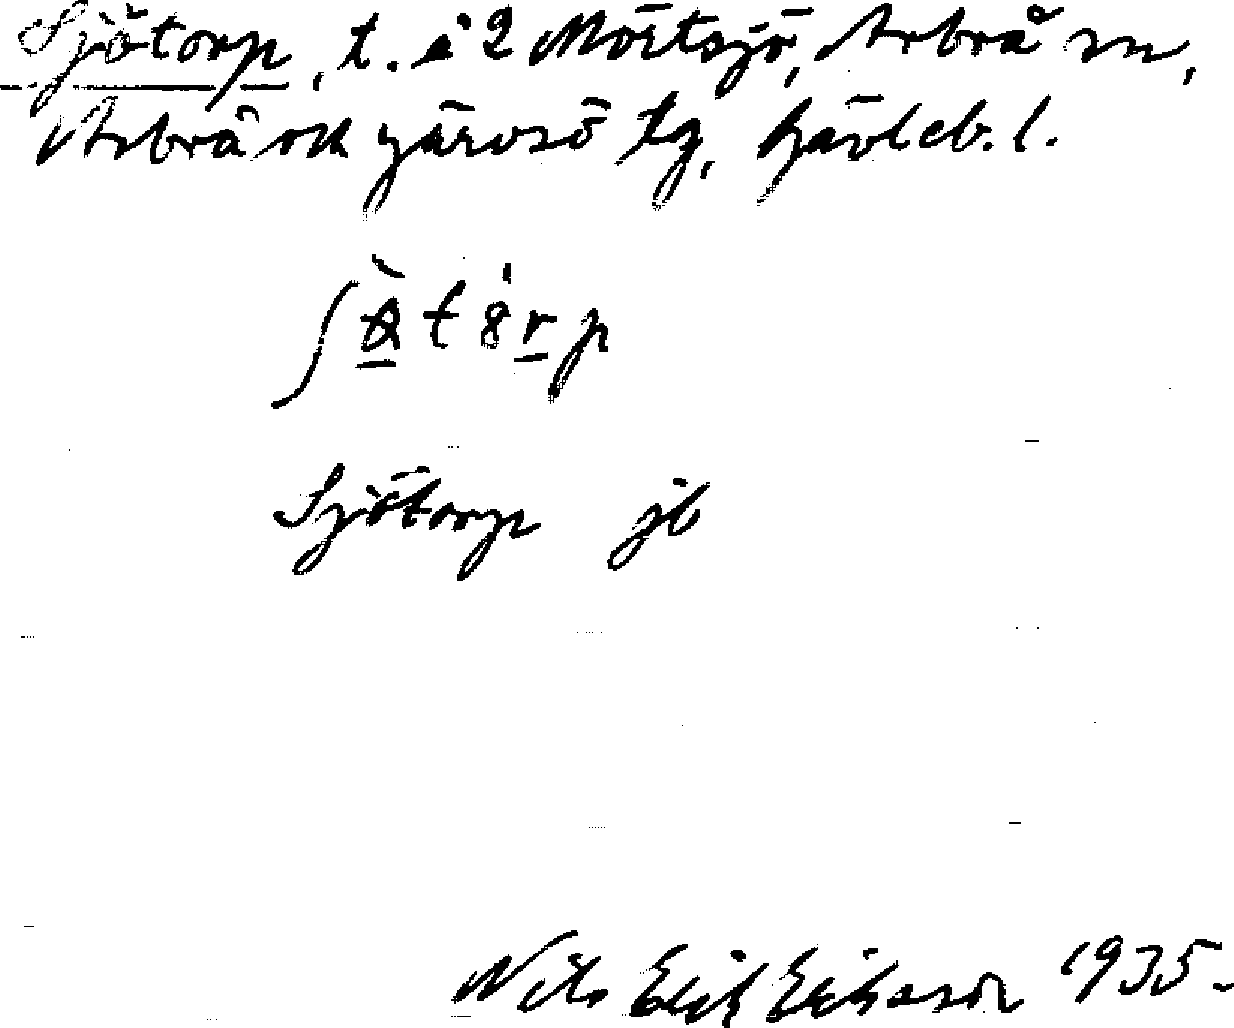 Sjötorp, t. å 2 Mörtsjö, Arbrå sn,
Arbrå ock Järvsö tg, Gävleb. l.
Sjötorp jb
Nils Erik Eriksson 1935.